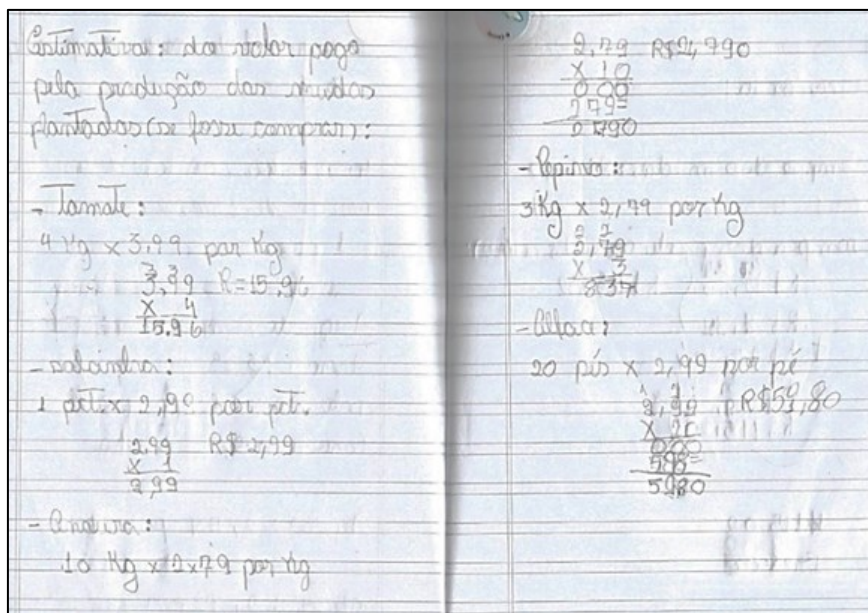 Estimativa: do valor pago
pela produção das mudas
plantadas (se fosse comprar):
- Tomate:
4 Kg x 3,99 por Kg
3 3
3,99 R=15,96
x 4
15,96
- salsinha:
1 pct. x 2,99 por pct.
2,99 R$ 2,99
x 1
2,99
10 Kg x 2x79 por Kg
2,79 R$24,790
x 10
000
279=
2790
- Pepino:
3Kg x 2,79 por Kg
2 2
2,79
x 3
8 37
- Alface:
20 pés x 2,99 por pé
1 1
2,99 R$59,80
x 20
000
598=
5980